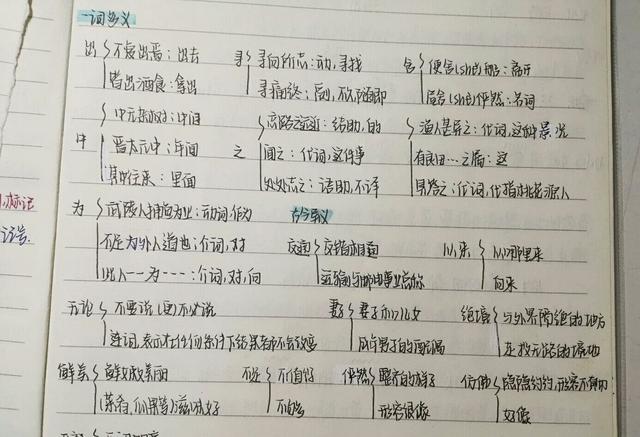 一词多义
出 不复出焉：出去 寻 寻向所志：动,寻找 舍 便舍(shě)船：离开
皆出酒食：拿出 寻病终：副,不久,随即 屋舍(shè)俨然：名词
中无杂树：中间 忘路之远近：结助,的 渔人甚异之：代词,这种景况
中 晋太元中：年间 之 闻之：代词,这件事 有良田…之属：这
其中往来：里面 处处志之：语助,不译 具答之：代词,代指桃花源人
为 武陵人捕鱼为业：动词,作为 古今异义
不足为外人道也：介词,对 交通 交错相通 从来 从哪里来
此人一一为……：介词,对,向 运输与邮电事业总称 向来
无论 不要说,(更)不必说 妻子 妻子和儿女 绝境 与外界隔绝的地方
连词,表示在任何条件下结果都不会改变 风华男子的配偶 走投无路的境地
鲜美 鲜艳美丽 不足 不值得 俨然 整齐的样子 仿佛 隐隐约约,形容不真切
(菜肴、瓜果等)滋味好 不够 形容很像 好像
标记